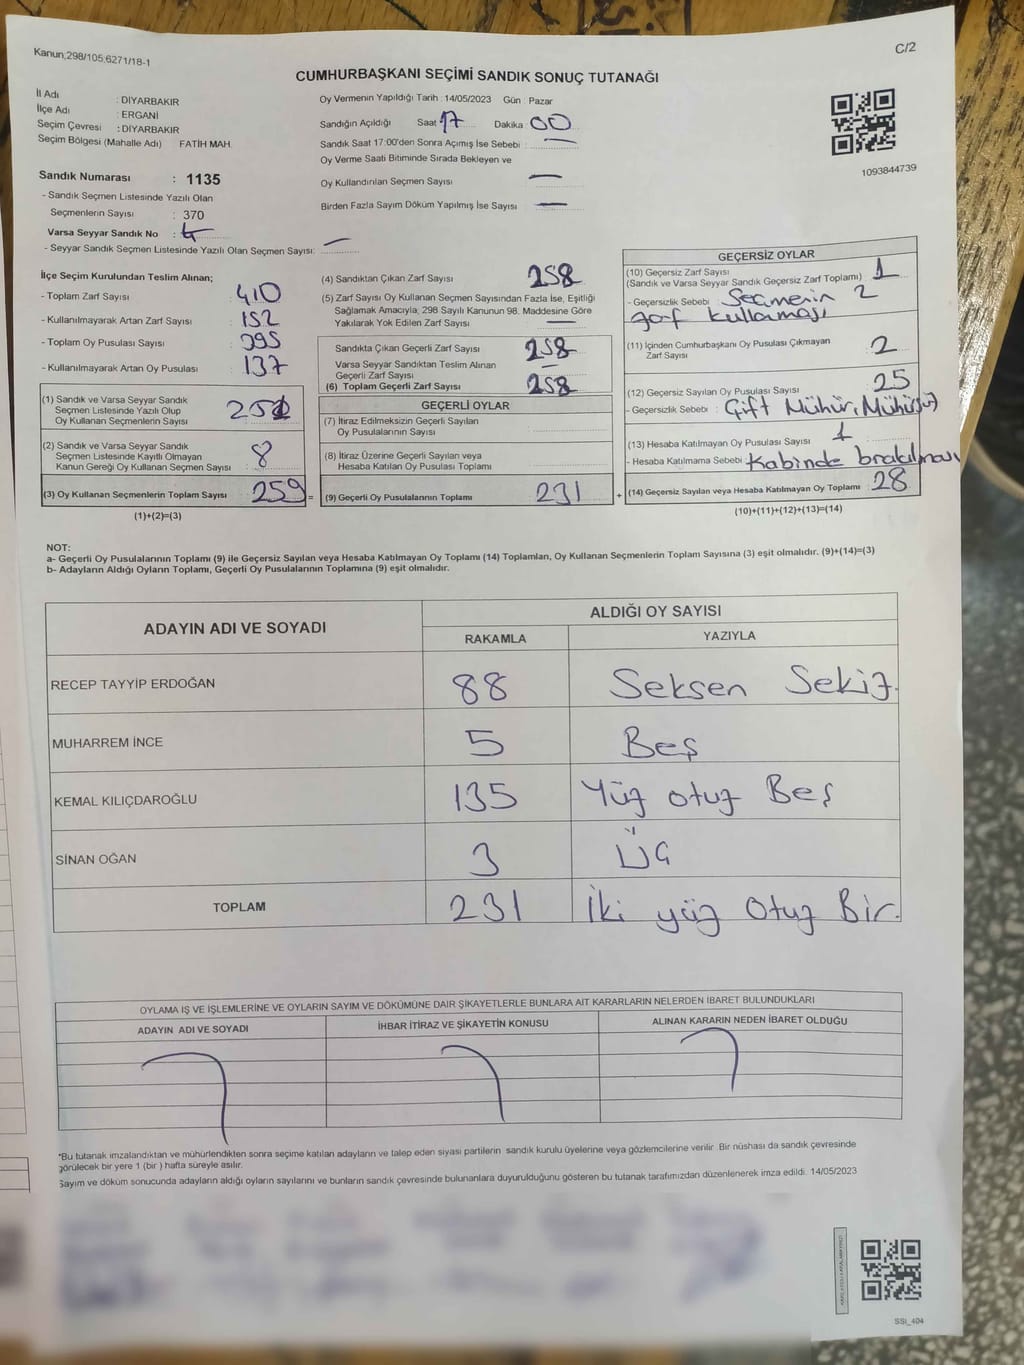 Kanun;298/105;6271/18-1
C/2
CUMHURBAŞKANI SEÇİMİ SANDIK SONUÇ TUTANAĞI
İl Adı : DİYARBAKIR
İlçe Adı : ERGANİ
Seçim Çevresi : DİYARBAKIR
Seçim Bölgesi (Mahalle Adı) FATİH MAH.
Sandık Numarası : 1135
- Sandık Seçmen Listesinde Yazılı Olan
Seçmenlerin Sayısı : 370
Varsa Seyyar Sandık No :
- Seyyar Sandık Seçmen Listesinde Yazılı Olan Seçmen Sayısı: —
Oy Vermenin Yapıldığı Tarih : 14/05/2023 Gün : Pazar
Sandığın Açıldığı Saat 17 Dakika : 00
Sandık Saat 17:00'den Sonra Açımış İse Sebebi : —
Oy Verme Saati Bitiminde Sırada Bekleyen ve
Oy Kullandırılan Seçmen Sayısı —
Birden Fazla Sayım Döküm Yapılmış İse Sayısı —
1093844739
İlçe Seçim Kurulundan Teslim Alınan;
- Toplam Zarf Sayısı : 410
- Kullanılmayarak Artan Zarf Sayısı : 152
- Toplam Oy Pusulası Sayısı : 395
- Kullanılmayarak Artan Oy Pusulası : 137
(1) Sandık ve Varsa Seyyar Sandık
Seçmen Listesinde Yazılı Olup
Oy Kullanan Seçmenlerin Sayısı 251
(2) Sandık ve Varsa Seyyar Sandık
Seçmen Listesinde Kayıtlı Olmayan
Kanun Gereği Oy Kullanan Seçmen Sayısı 8
(3) Oy Kullanan Seçmenlerin Toplam Sayısı 259 =
(1)+(2)=(3)
(4) Sandıktan Çıkan Zarf Sayısı 258
(5) Zarf Sayısı Oy Kullanan Seçmen Sayısından Fazla İse, Eşitliği
Sağlamak Amacıyla, 298 Sayılı Kanunun 98. Maddesine Göre
Yakılarak Yok Edilen Zarf Sayısı —
Sandıkta Çıkan Geçerli Zarf Sayısı 258
Varsa Seyyar Sandıktan Teslim Alınan
Geçerli Zarf Sayısı —
(6) Toplam Geçerli Zarf Sayısı 258
GEÇERLİ OYLAR
(7) İtiraz Edilmeksizin Geçerli Sayılan
Oy Pusulalarının Sayısı
(8) İtiraz Üzerine Geçerli Sayılan veya
Hesaba Katılan Oy Pusulası Toplamı
(9) Geçerli Oy Pusulalarının Toplamı 231 +
GEÇERSİZ OYLAR
(10) Geçersiz Zarf Sayısı
(Sandık ve Varsa Seyyar Sandık Geçersiz Zarf Toplamı) 1
- Geçersizlik Sebebi : Seçmenin 2
zarf kullanması
(11) İçinden Cumhurbaşkanı Oy Pusulası Çıkmayan
Zarf Sayısı 2
(12) Geçersiz Sayılan Oy Pusulası Sayısı 25
- Geçersizlik Sebebi : Çift Mühür, Mühürsüz
(13) Hesaba Katılmayan Oy Pusulası Sayısı 1
- Hesaba Katılmama Sebebi : Kabinde bırakılması
(14) Geçersiz Sayılan veya Hesaba Katılmayan Oy Toplamı : 28
(10)+(11)+(12)+(13)=(14)
NOT:
a- Geçerli Oy Pusulalarının Toplamı (9) ile Geçersiz Sayılan veya Hesaba Katılmayan Oy Toplamı (14) Toplamları, Oy Kullanan Seçmenlerin Toplam Sayısına (3) eşit olmalıdır. (9)+(14)=(3)
b- Adayların Aldığı Oyların Toplamı, Geçerli Oy Pusulalarının Toplamına (9) eşit olmalıdır.
ADAYIN ADI VE SOYADI
ALDIĞI OY SAYISI
RAKAMLA YAZIYLA
RECEP TAYYİP ERDOĞAN 88 Seksen Sekiz.
MUHARREM İNCE 5 Beş
KEMAL KILIÇDAROĞLU 135 Yüz otuz Beş
SİNAN OĞAN 3 Üç
TOPLAM 231 İki yüz Otuz Bir.
OYLAMA İŞ VE İŞLEMLERİNE VE OYLARIN SAYIM VE DÖKÜMÜNE DAİR ŞİKAYETLERLE BUNLARA AİT KARARLARIN NELERDEN İBARET BULUNDUKLARI
ADAYIN ADI VE SOYADI İHBAR İTİRAZ VE ŞİKAYETİN KONUSU ALINAN KARARIN NEDEN İBARET OLDUĞU
*Bu tutanak imzalandıktan ve mühürlendikten sonra seçime katılan adayların ve talep eden siyasi partilerin sandık kurulu üyelerine veya gözlemcilerine verilir. Bir nüshası da sandık çevresinde
görülecek bir yere 1 (bir ) hafta süreyle asılır.
Sayım ve döküm sonucunda adayların aldığı oyların sayılarını ve bunların sandık çevresinde bulunanlara duyurulduğunu gösteren bu tutanak tarafımızdan düzenlenerek imza edildi. 14/05/2023
SSI_404